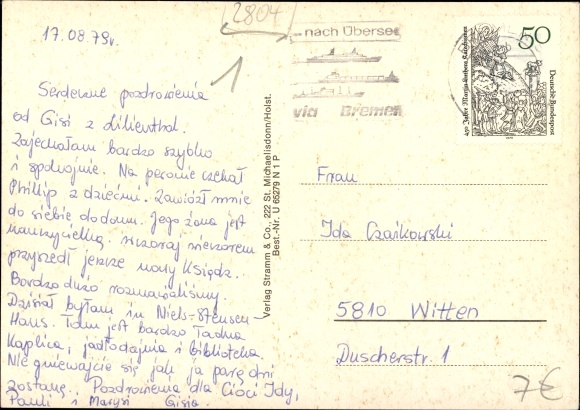 2804
17.08.79r.
1
Serdeczne pozdrowienia
od Gisi z Lilienthal.
Zajechałam bardzo szybko
i spokojnie. Na peronie czekał
Phillip z dziećmi. Zawiózł mnie
do siebie do domu. Jego żona jest
nauczycielką. Wczoraj wieczorem
przyszedł jeszcze nowy Ksiądz.
Bardzo dużo rozmawialiśmy.
Dzisiaj byłam in Niels-Stensen-
Haus. Tam jest bardzo ładna
Kaplica, jadłodajnia i biblioteka.
Nie gniewajcie się jak ja parę dni
zostanę. Pozdrowienia dla Cioci Idy,
Pauli i Marysi Gisia.
Verlag Stramm & Co., 222 St. Michaelisdonn/Holst.
Best.-Nr. U 65279 N 1 P
nach Übersee
via Bremen
50
Deutsche Bundespost
450 Jahre Martin Luthers Katechismus
Frau
Ida Czaikowski
5810 Witten
Duscherstr. 1
7€